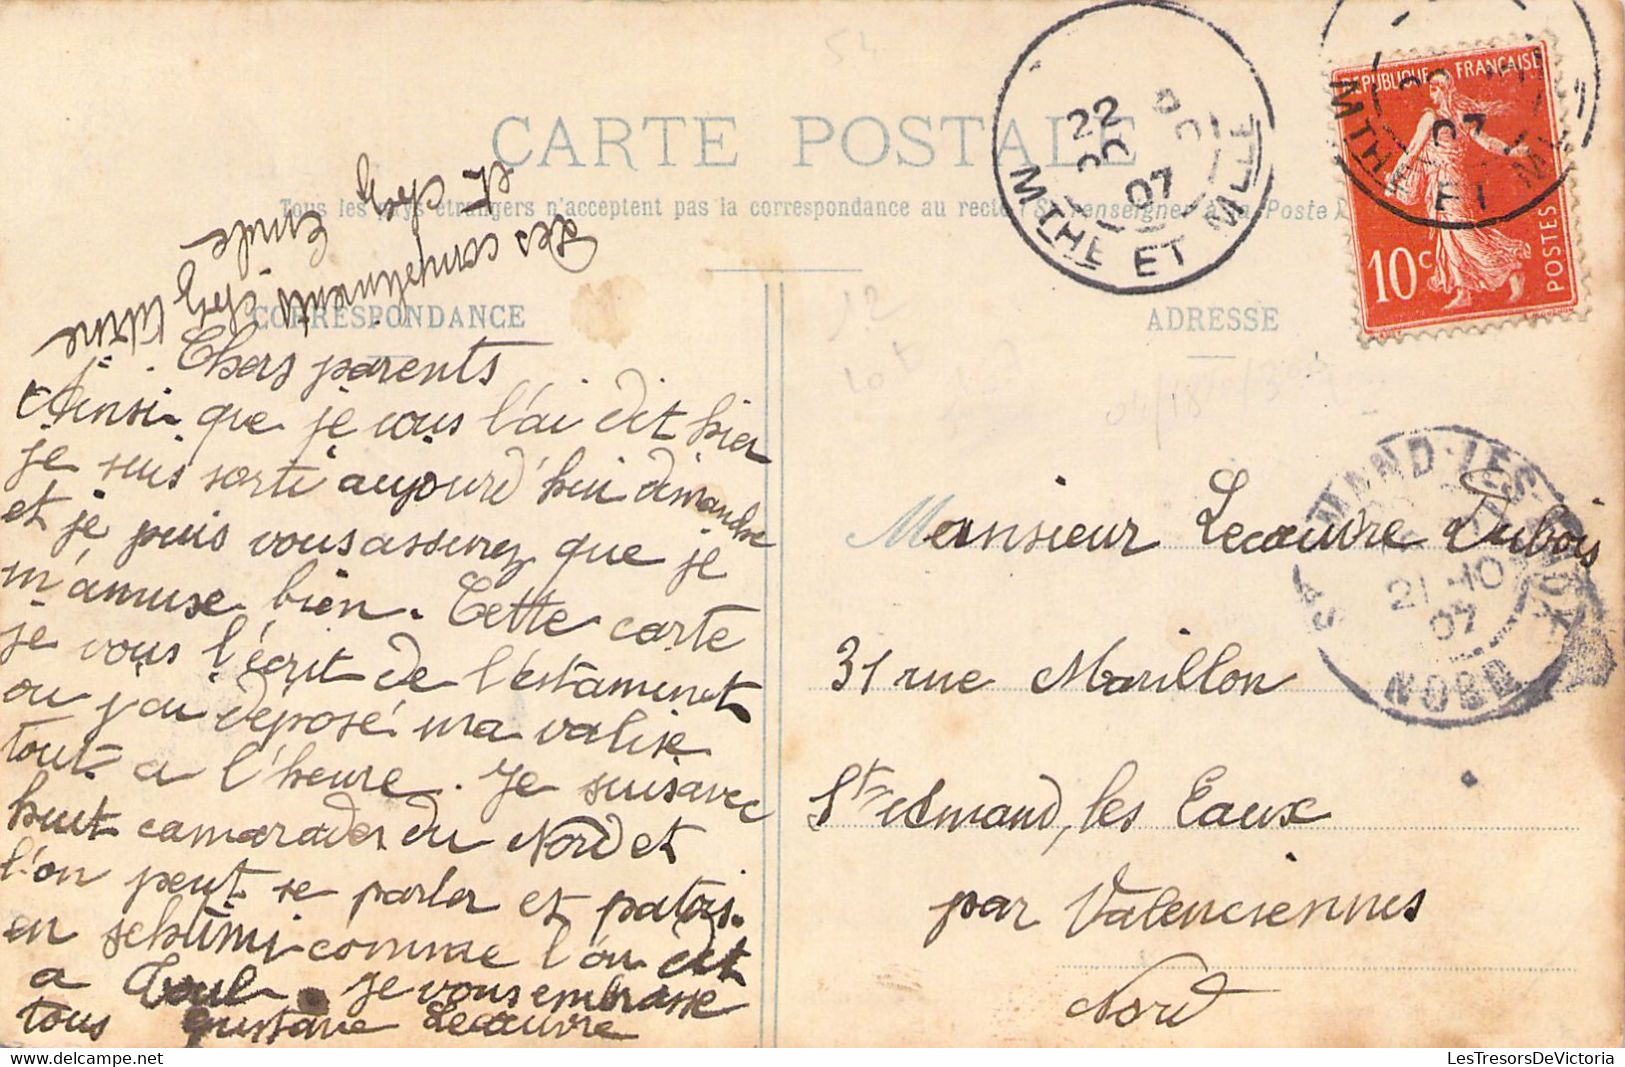 CARTE POSTALE
Tous les pays étrangers n'acceptent pas la correspondance au recto (Se renseigner à la Poste)
CORRESPONDANCE
ADRESSE
Des compliments chez Catrine
et chez Emile
Chers parents
Ainsi que je vous l'ai dit hier
je suis sorti aujourd'hui dimanche
et je puis vous assurez que je
m'amuse bien. Cette carte
je vous l'écrit de l'estaminet
ou j'ai déposé ma valise
tout a l'heure. Je suis avec
huit camarades du Nord et
l'on peut se parler et patois.
en comme l'on dit
a Toul. Je vous embrasse
tous Gustave Lecœuvre
Monsieur Lecœuvre Dubois
31 rue Marillon
St Amand, les Eaux
par Valenciennes
Nord
REPUBLIQUE FRANÇAISE
10c
POSTES
MTHE ET MLLE
22
07
MTHE ET M
07
ST AMAND-LES-EAUX
21-10
07
NORD
LesTresorsDeVictoria